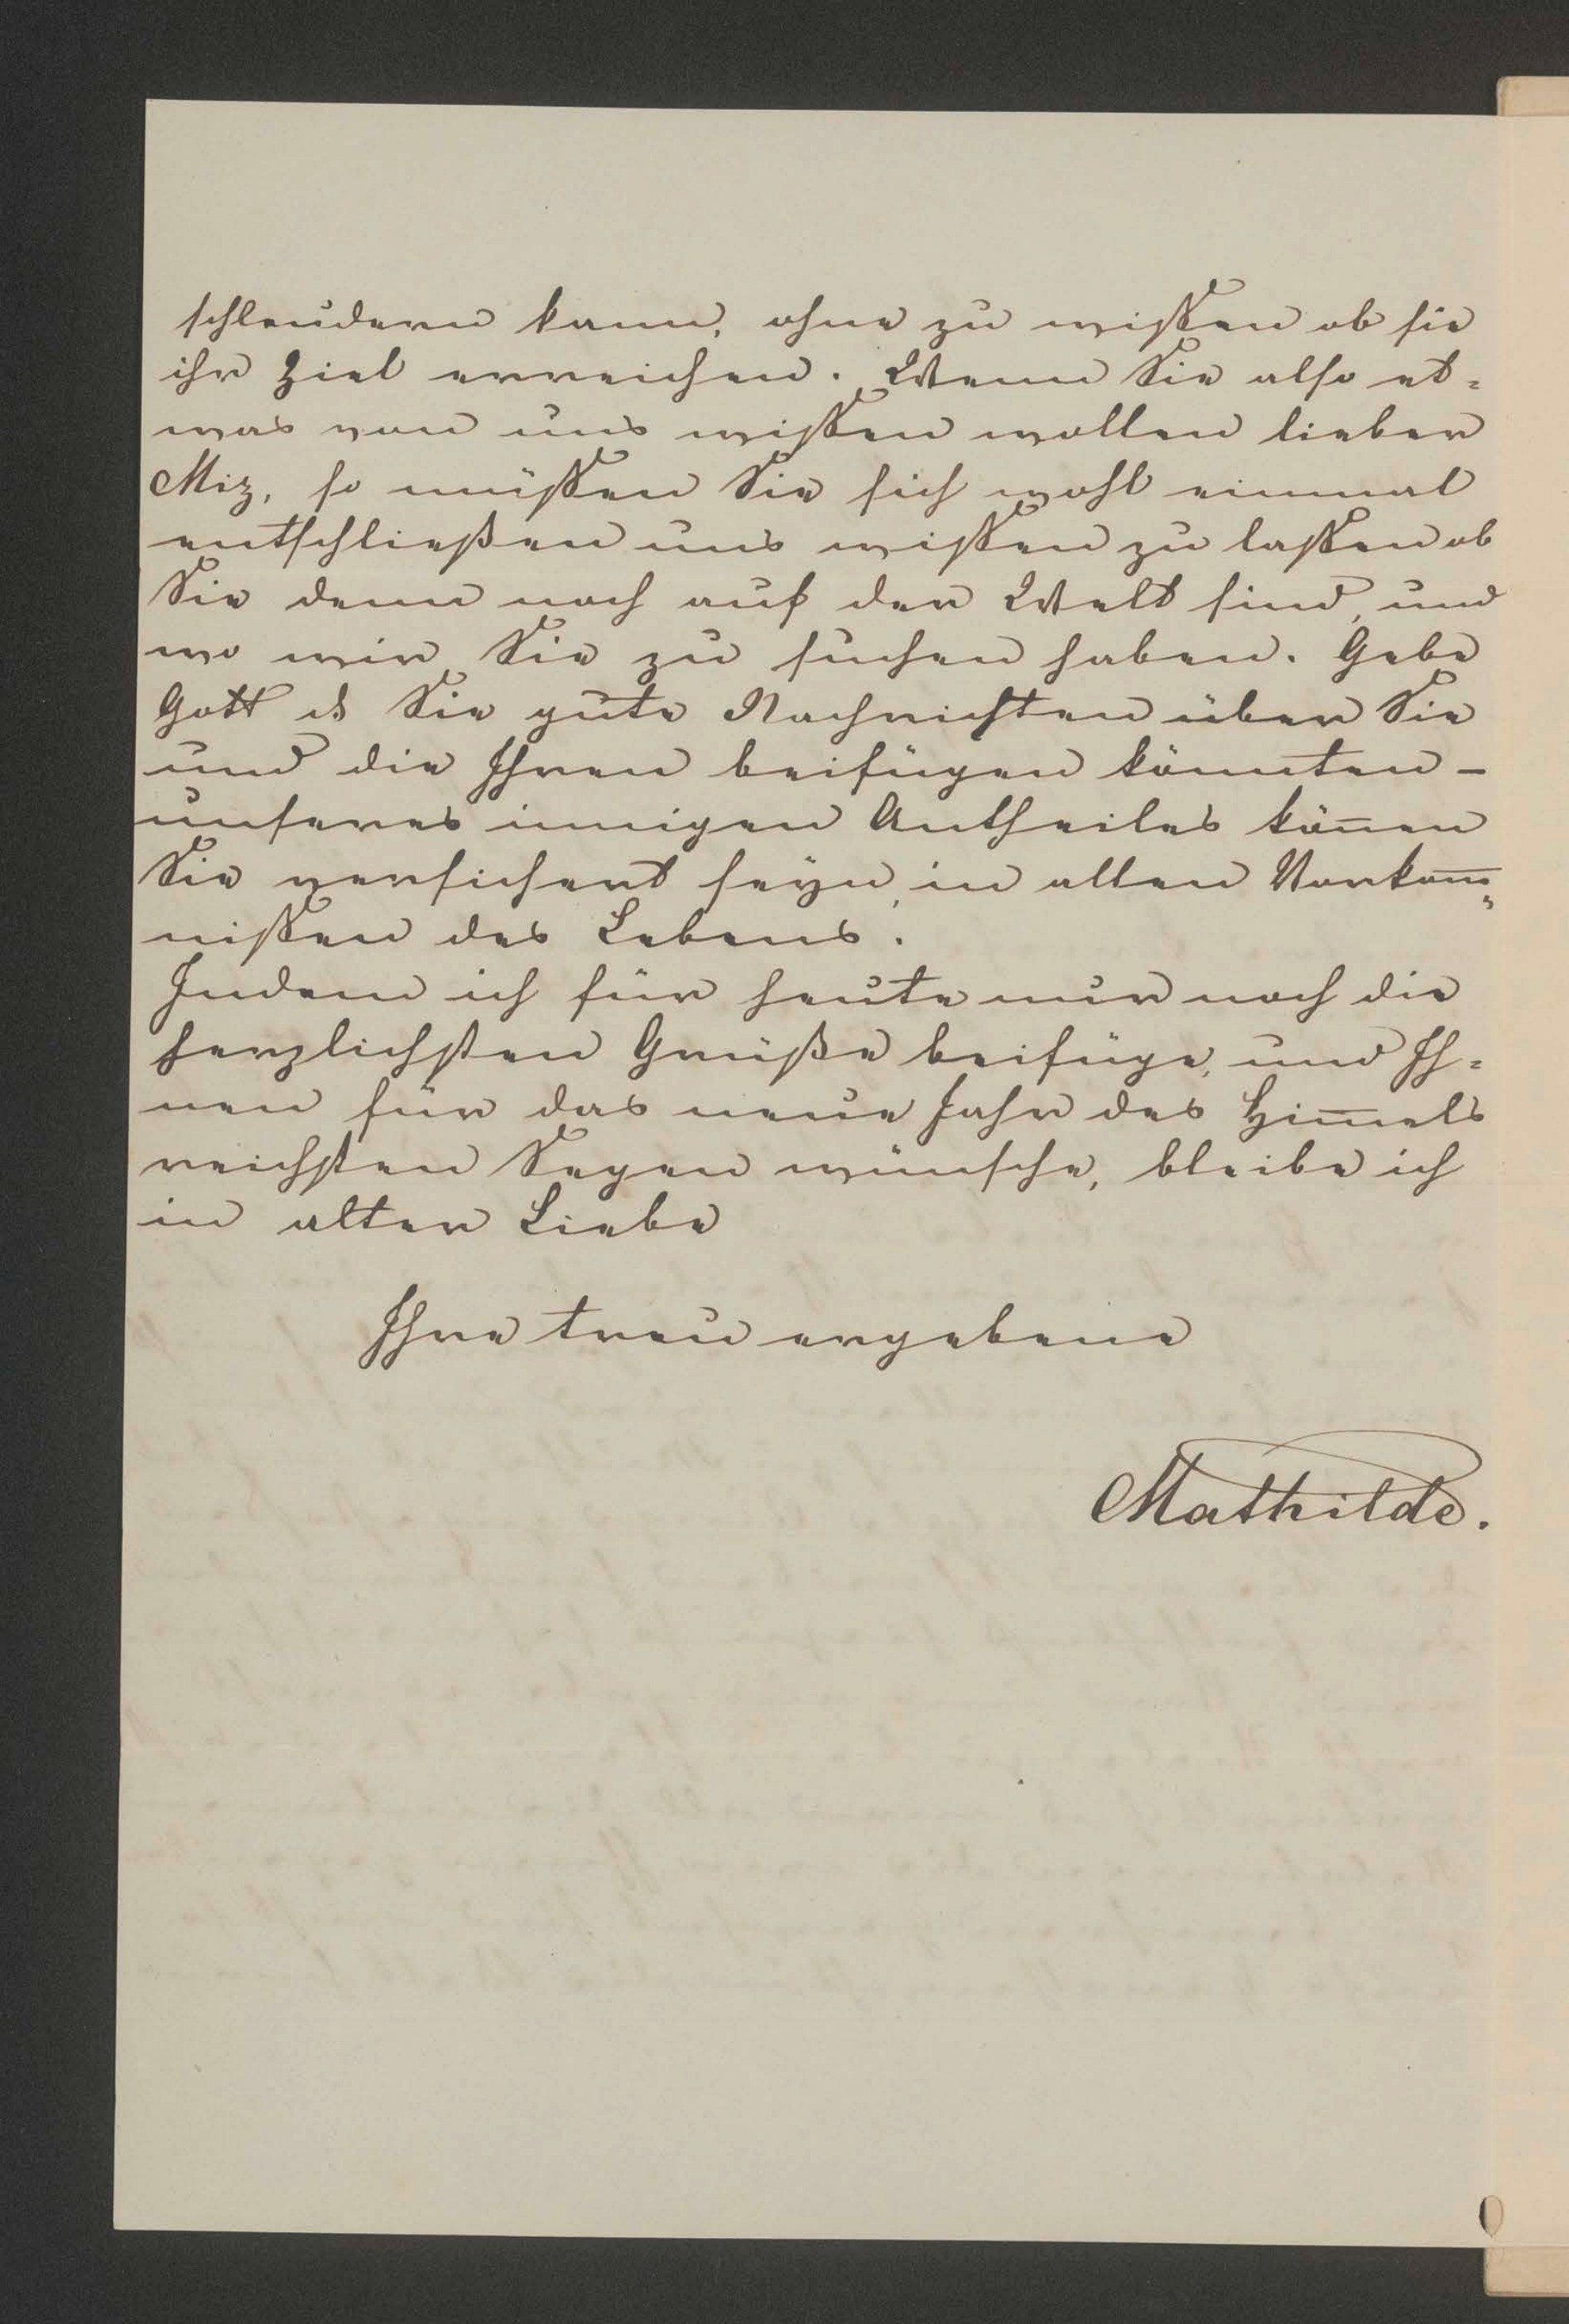 schleudern kann, ohne zu wißen ob sie
ihr Ziel erreichen. Wenn Sie also et=
was von uns wißen wollen lieber
Miz, so müßen Sie sich wohl einmal
entschließen uns wißen zu laßen ob
Sie denn noch auf der Welt sind, und
wo wir Sie zu suchen haben. Gebe
Gott ds Sie gute Nachrichten über Sie
und die Ihren beifügen könnten –
unseres innigen Antheiles kön̅en
Sie versichert seyn, in allen Vorkom̅=
nißen des Lebens.
Indem ich für heute nur noch die
herzlichsten Grüße beifüge, und Ih=
nen für das neue Jahr des Him̅els
reichsten Segen wünsche, bleibe ich
in alter Liebe
Ihre treu ergebene
Mathilde.